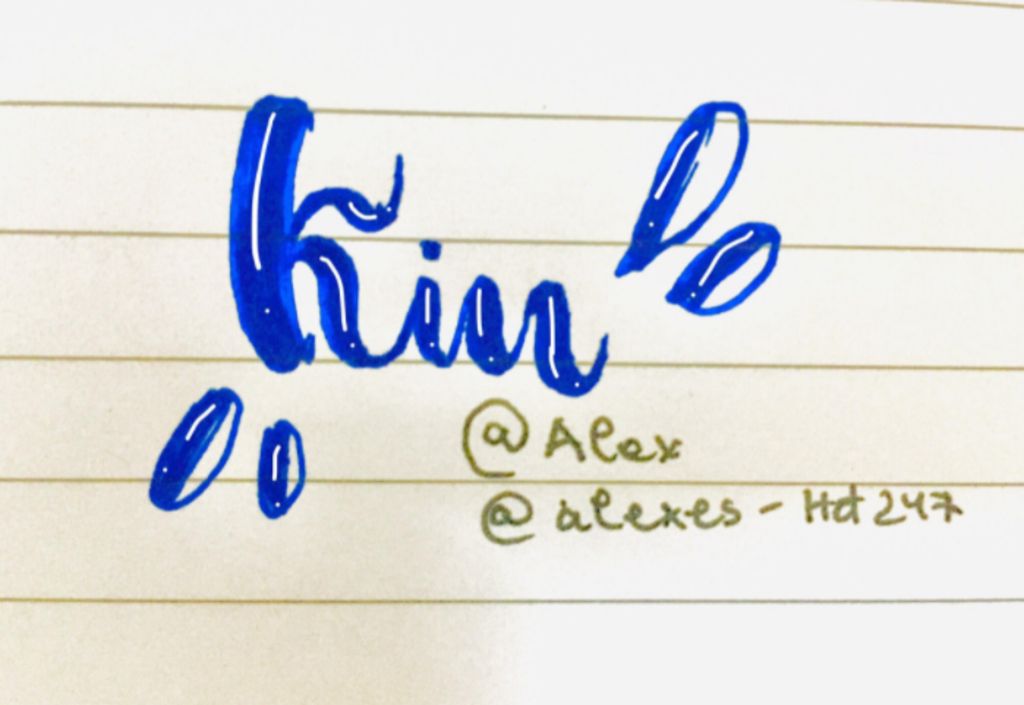 Kim
@Alex
@alexes-Hd247